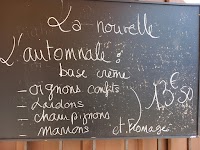 La nouvelle
L'automnale :
base crème
- oignons confits
- lardons
- champignons
- marrons et fromage
13€50